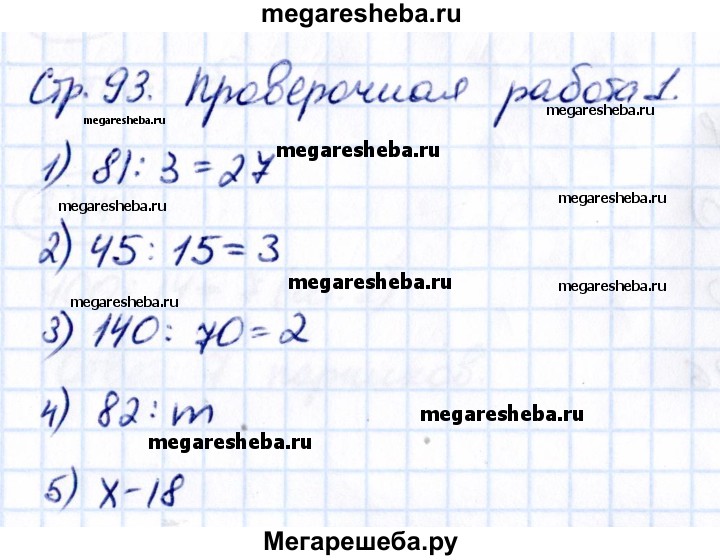 megaresheba.ru
Стр. 93. Проверочная работа 1.
megaresheba.ru
megaresheba.ru
1) 81 : 3 = 27
megaresheba.ru
megaresheba.ru
megaresheba.ru
2) 45 : 15 = 3
megaresheba.ru
megaresheba.ru
3) 140 : 70 = 2
4) 82 : m
megaresheba.ru
megaresheba.ru
5) x - 18
Мегарешеба.ру